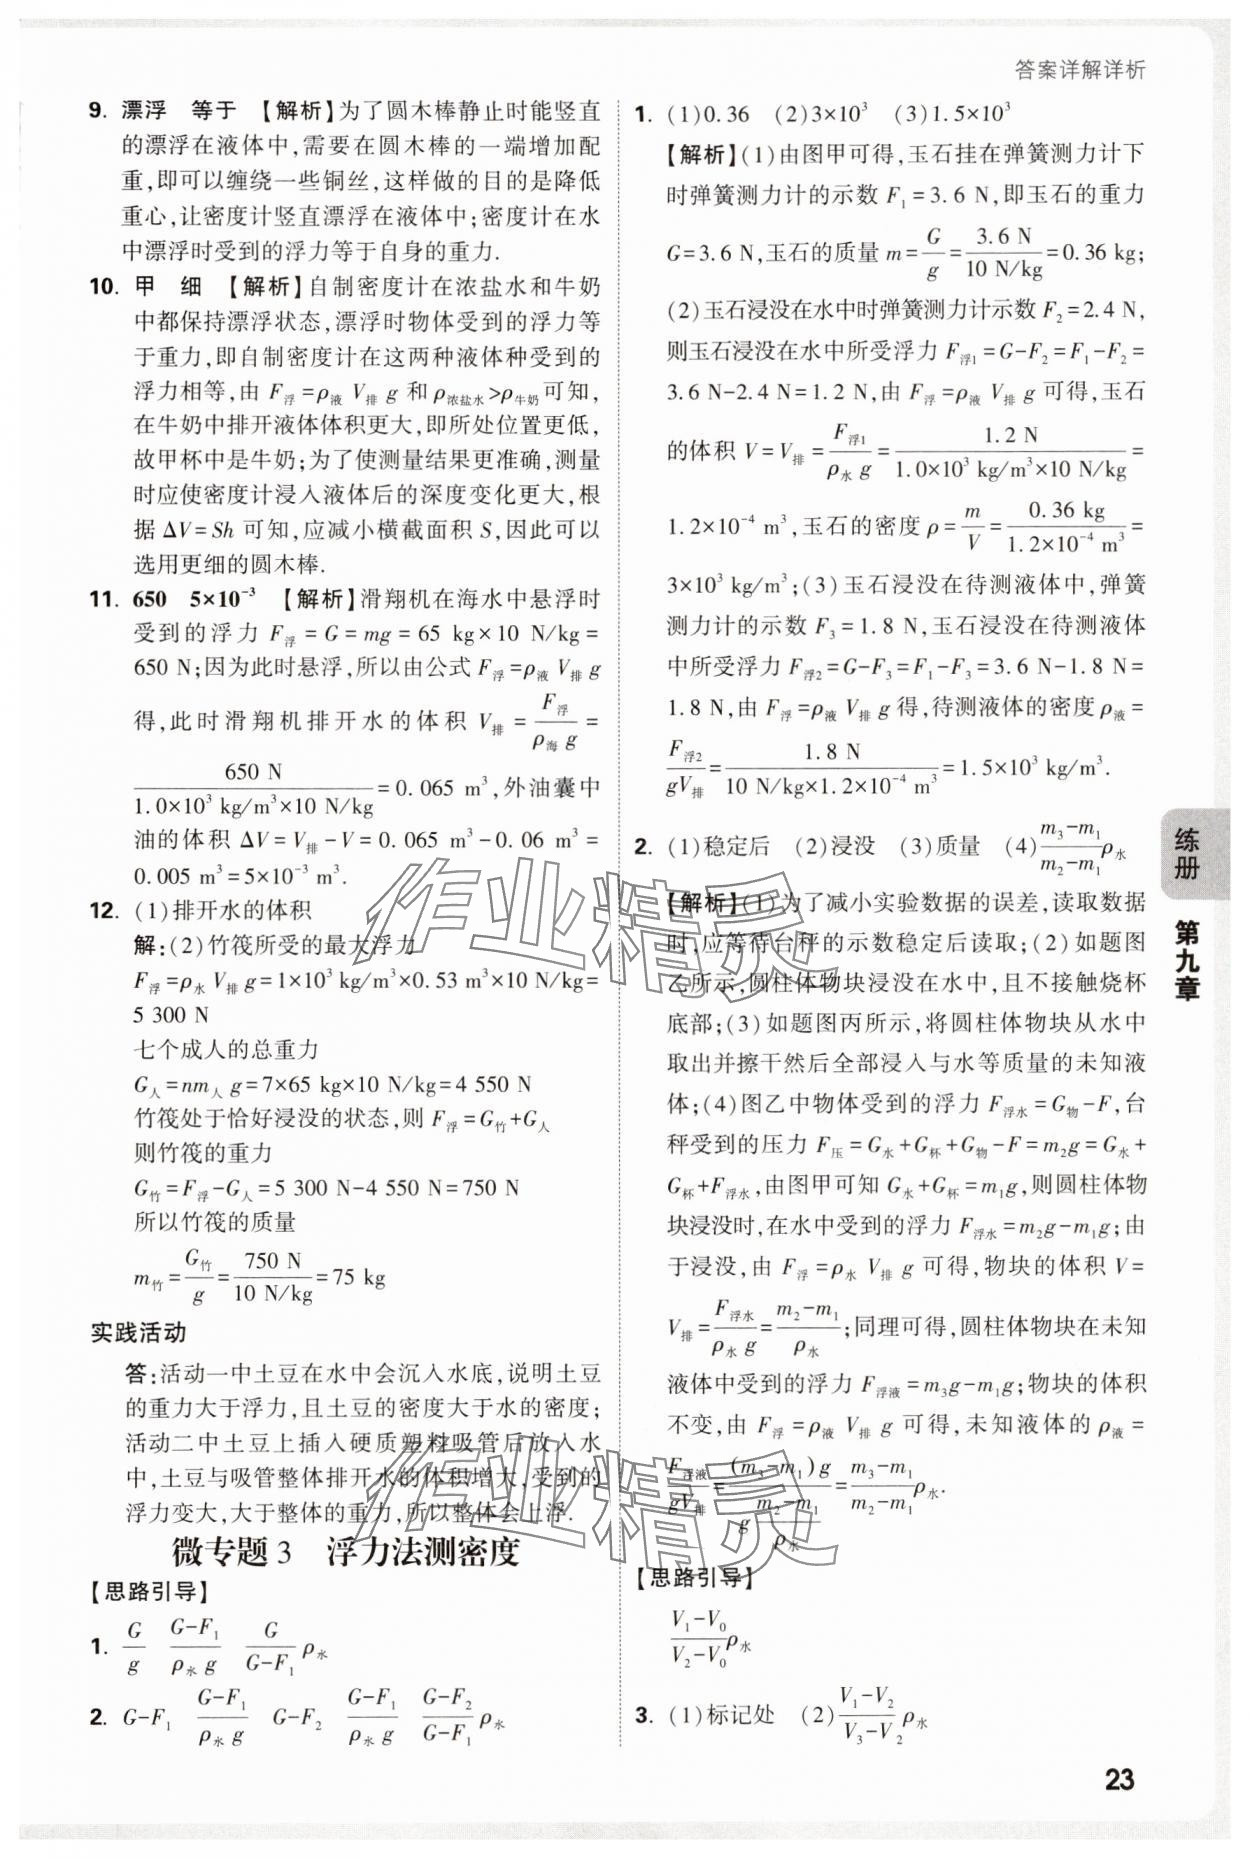 答案详解详析
9. 漂浮　等于　【解析】为了圆木棒静止时能竖直
的漂浮在液体中,需要在圆木棒的一端增加配
重,即可以缠绕一些铜丝,这样做的目的是降低
重心,让密度计竖直漂浮在液体中;密度计在水
中漂浮时受到的浮力等于自身的重力.
10. 甲　细　【解析】自制密度计在浓盐水和牛奶
中都保持漂浮状态,漂浮时物体受到的浮力等
于重力,即自制密度计在这两种液体种受到的
浮力相等,由 F浮=ρ液 V排 g 和 ρ浓盐水>ρ牛奶可知,
在牛奶中排开液体体积更大,即所处位置更低,
故甲杯中是牛奶;为了使测量结果更准确,测量
时应使密度计浸入液体后的深度变化更大,根
据 ΔV=Sh 可知,应减小横截面积 S,因此可以
选用更细的圆木棒.
11. 650　5×10⁻³　【解析】滑翔机在海水中悬浮时
受到的浮力 F浮=G=mg=65 kg×10 N/kg=
650 N;因为此时悬浮,所以由公式 F浮=ρ液 V排 g
得,此时滑翔机排开水的体积 V排=F浮/(ρ海 g)=
650 N/(1.0×10³ kg/m³×10 N/kg)=0.065 m³,外油囊中
油的体积 ΔV=V排-V=0.065 m³-0.06 m³=
0.005 m³=5×10⁻³ m³.
12. (1)排开水的体积
解:(2)竹筏所受的最大浮力
F浮=ρ水 V排 g=1×10³ kg/m³×0.53 m³×10 N/kg=
5 300 N
七个成人的总重力
G人=nm人 g=7×65 kg×10 N/kg=4 550 N
竹筏处于恰好浸没的状态,则 F浮=G竹+G人
则竹筏的重力
G竹=F浮-G人=5 300 N-4 550 N=750 N
所以竹筏的质量
m竹=G竹/g=750 N/(10 N/kg)=75 kg
实践活动
答:活动一中土豆在水中会沉入水底,说明土豆
的重力大于浮力,且土豆的密度大于水的密度;
活动二中土豆上插入硬质塑料吸管后放入水
中,土豆与吸管整体排开水的体积增大,受到的
浮力变大,大于整体的重力,所以整体会上浮.
微专题 3　浮力法测密度
【思路引导】
1. G/g　(G-F₁)/(ρ水 g)　G/(G-F₁) ρ水
2. G-F₁　(G-F₁)/(ρ水 g)　G-F₂　(G-F₁)/(ρ水 g)　(G-F₂)/(G-F₁) ρ水
1. (1)0.36　(2)3×10³　(3)1.5×10³
【解析】(1)由图甲可得,玉石挂在弹簧测力计下
时弹簧测力计的示数 F₁=3.6 N,即玉石的重力
G=3.6 N,玉石的质量 m=G/g=3.6 N/(10 N/kg)=0.36 kg;
(2)玉石浸没在水中时弹簧测力计示数 F₂=2.4 N,
则玉石浸没在水中所受浮力 F浮1=G-F₂=F₁-F₂=
3.6 N-2.4 N=1.2 N,由 F浮=ρ液 V排 g 可得,玉石
的体积 V=V排=F浮1/(ρ水 g)=1.2 N/(1.0×10³ kg/m³×10 N/kg)=
1.2×10⁻⁴ m³,玉石的密度 ρ=m/V=0.36 kg/(1.2×10⁻⁴ m³)=
3×10³ kg/m³;(3)玉石浸没在待测液体中,弹簧
测力计的示数 F₃=1.8 N,玉石浸没在待测液体
中所受浮力 F浮2=G-F₃=F₁-F₃=3.6 N-1.8 N=
1.8 N,由 F浮=ρ液 V排 g 得,待测液体的密度 ρ液=
F浮2/(gV排)=1.8 N/(10 N/kg×1.2×10⁻⁴ m³)=1.5×10³ kg/m³.
2. (1)稳定后　(2)浸没　(3)质量　(4)(m₃-m₁)/(m₂-m₁)ρ水
【解析】(1)为了减小实验数据的误差,读取数据
时,应等待台秤的示数稳定后读取;(2)如题图
乙所示,圆柱体物块浸没在水中,且不接触烧杯
底部;(3)如题图丙所示,将圆柱体物块从水中
取出并擦干然后全部浸入与水等质量的未知液
体;(4)图乙中物体受到的浮力 F浮水=G物-F,台
秤受到的压力 F压=G水+G杯+G物-F=m₂g=G水+
G杯+F浮水,由图甲可知 G水+G杯=m₁g,则圆柱体物
块浸没时,在水中受到的浮力 F浮水=m₂g-m₁g;由
于浸没,由 F浮=ρ水 V排 g 可得,物块的体积 V=
V排=F浮水/(ρ水 g)=(m₂-m₁)/ρ水;同理可得,圆柱体物块在未知
液体中受到的浮力 F浮液=m₃g-m₁g;物块的体积
不变,由 F浮=ρ液 V排 g 可得,未知液体的 ρ液=
F浮液/(gV排)=(m₃-m₁)g/(g(m₂-m₁)/ρ水)=(m₃-m₁)/(m₂-m₁)ρ水.
【思路引导】
(V₁-V₀)/(V₂-V₀)ρ水
3. (1)标记处　(2)(V₁-V₂)/(V₃-V₂)ρ水
练册
第九章
23
作业精灵
作业精灵